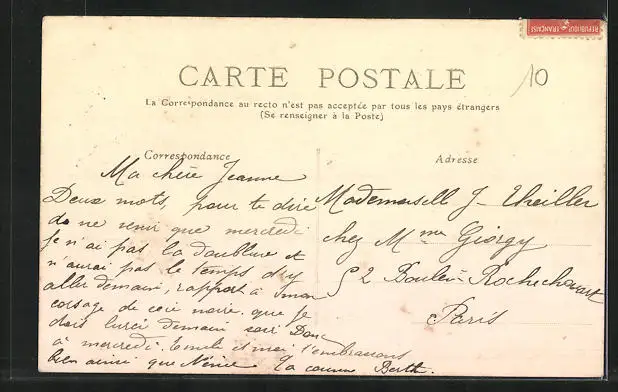 REPUBLIQUE FRANÇAISE
10
CARTE POSTALE
La Correspondance au recto n'est pas acceptée par tous les pays étrangers
(Se renseigner à la Poste)
Correspondance
Adresse
Ma chère Jeanne
Deux mots, pour te dire
de ne venir que mercredi
je n'ai pas la doublure et
n'aurai pas le temps d'y
aller demain, rapport à mon
corsage de soie noire que je
dois livrer demain soir Donc
à mercredi. Emile et moi t'embrassons
bien ainsi que Ta cousine Berth.
Mademoisell J. Theiller
chez Mme Giorgy
52 Boulev Rochechouart
Paris